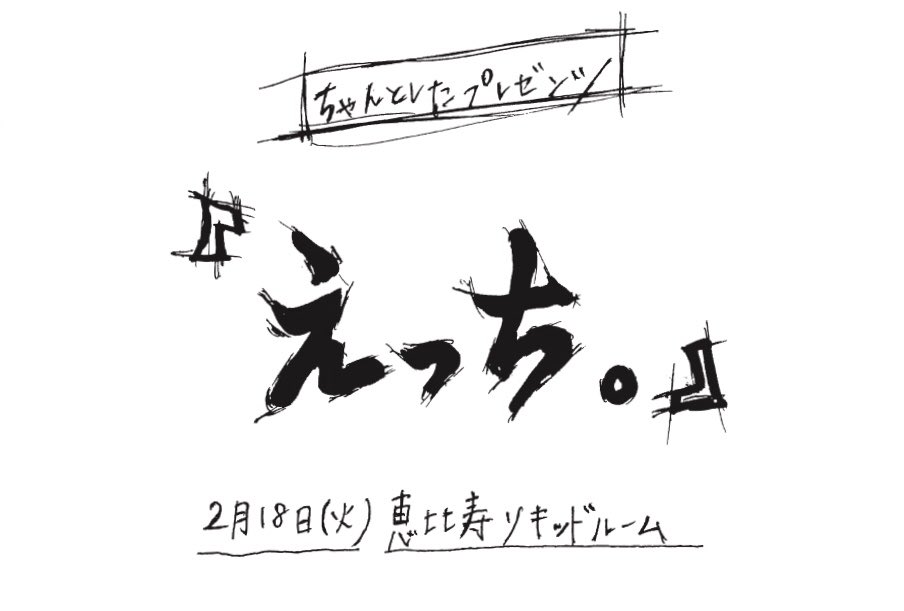 ちゃんとしたプレゼンツ
『えっち。』
2月18日(火) 恵比寿リキッドルーム